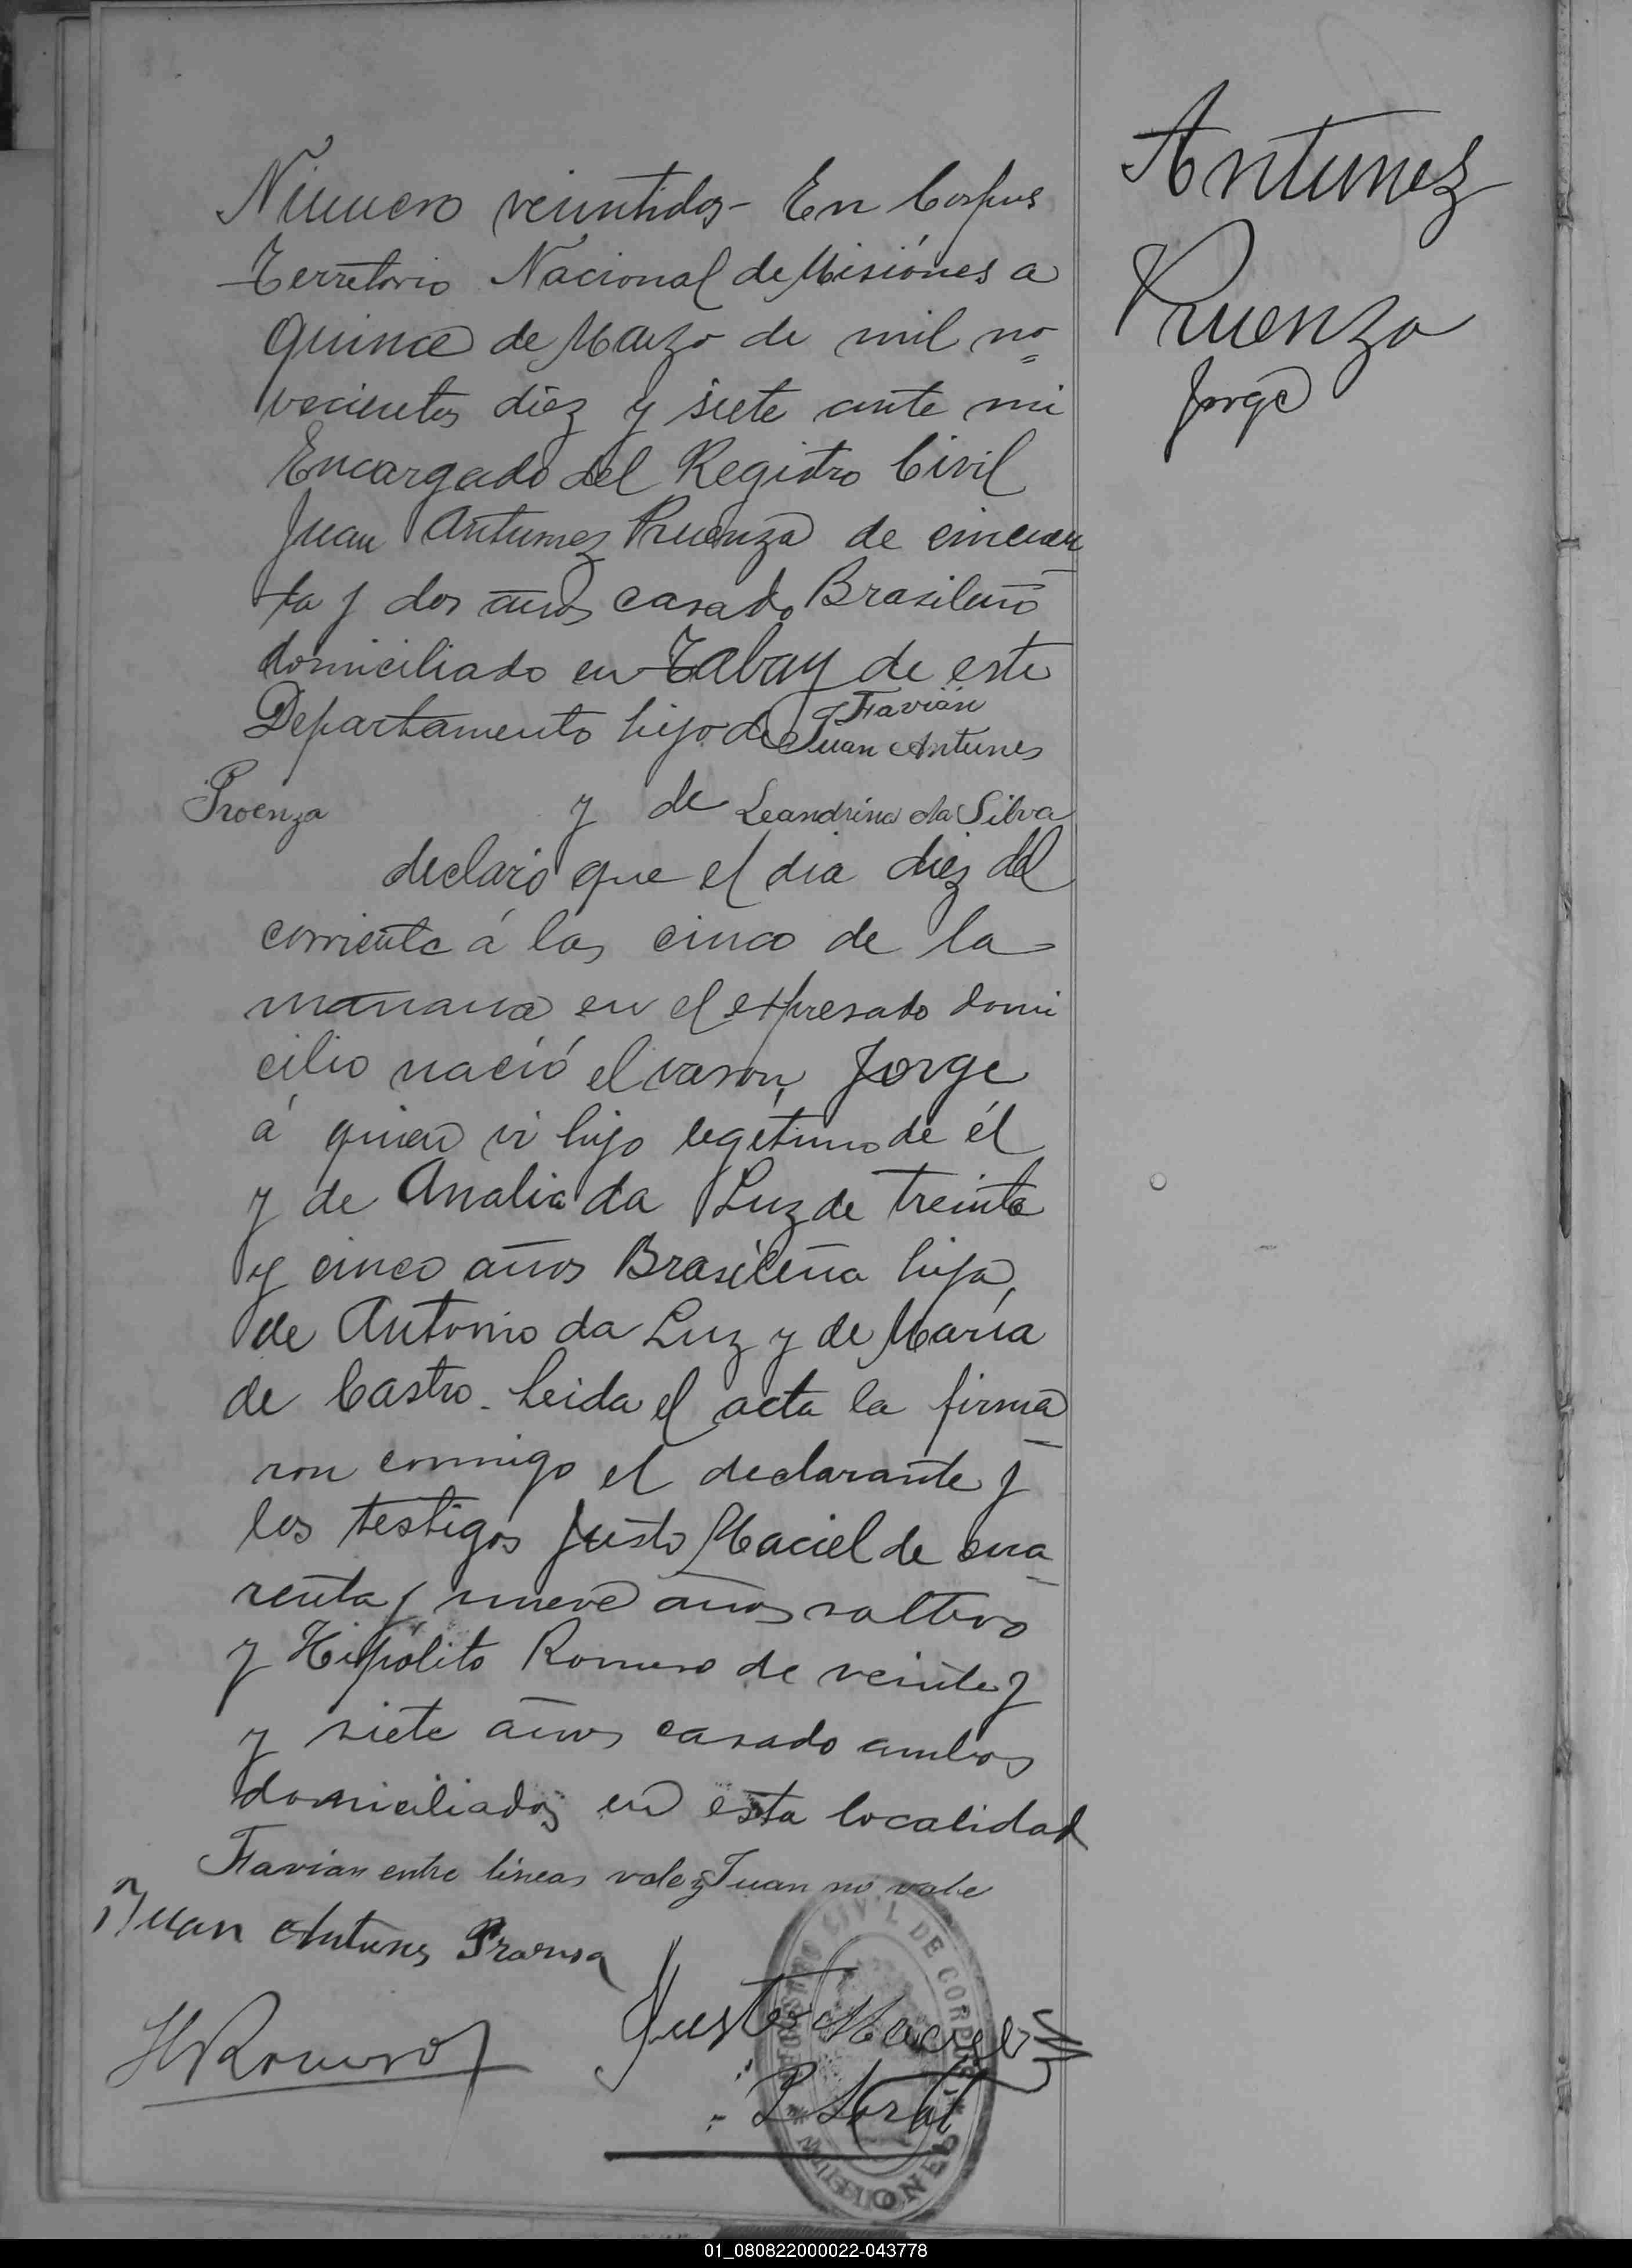 Número veintidos - En Corpus
Territorio Nacional de Misiónes a
quince de Marzo de mil no
vecientos diez y siete ante mi
Encargado del Registro Civil
Juan Antumez Pruenza de cincuen
ta y dos años casado Brasileño
domiciliado en Tabay de este
Departamento hijo de Juan Antunes
Flavián
Proenza y de Leandrina da Silva
declaró que el dia diez del
corriente á las cinco de la
mañana en el expresado domi
cilio nació el varon, Jorge
á quien vi hijo legítimo de él
y de Analia da Luz de treinta
y cinco años Brasileña hija,
de Antonio da Luz y de María
de Castro - Leida el acta la firma
ron conmigo el declarante y
los testigos Justo Maciel de cua
renta y nueve años soltero
y Hipólito Romero de veinte y
y siete años casado ambos
domiciliados en esta localidad
Flavian entre lineas vale y Juan no vale
Juan Antunes Proensa
Justo Maciel
H Romero
REGISTRO CIVIL DE CORPUS
MISIONES
Antumez
Pruenza
Jorge
01_080822000022-043778